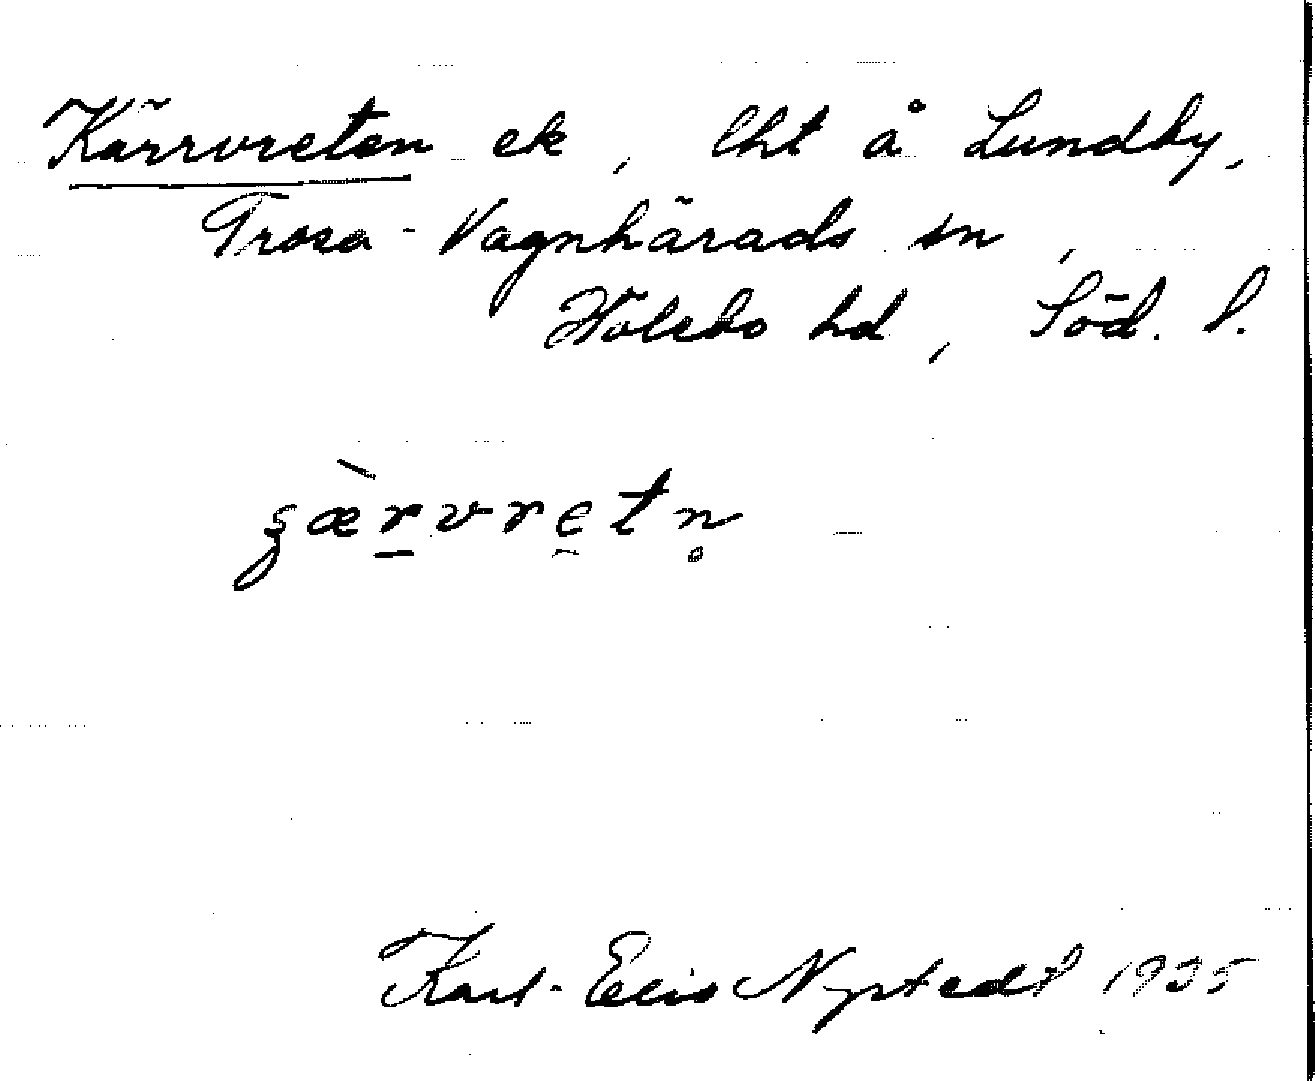 Kärrvreten ek, lht å Lundby,
Trosa-Vagnhärads sn,
Hölebo hd, Söd. l.
Karl-Elis Nystedt 1935